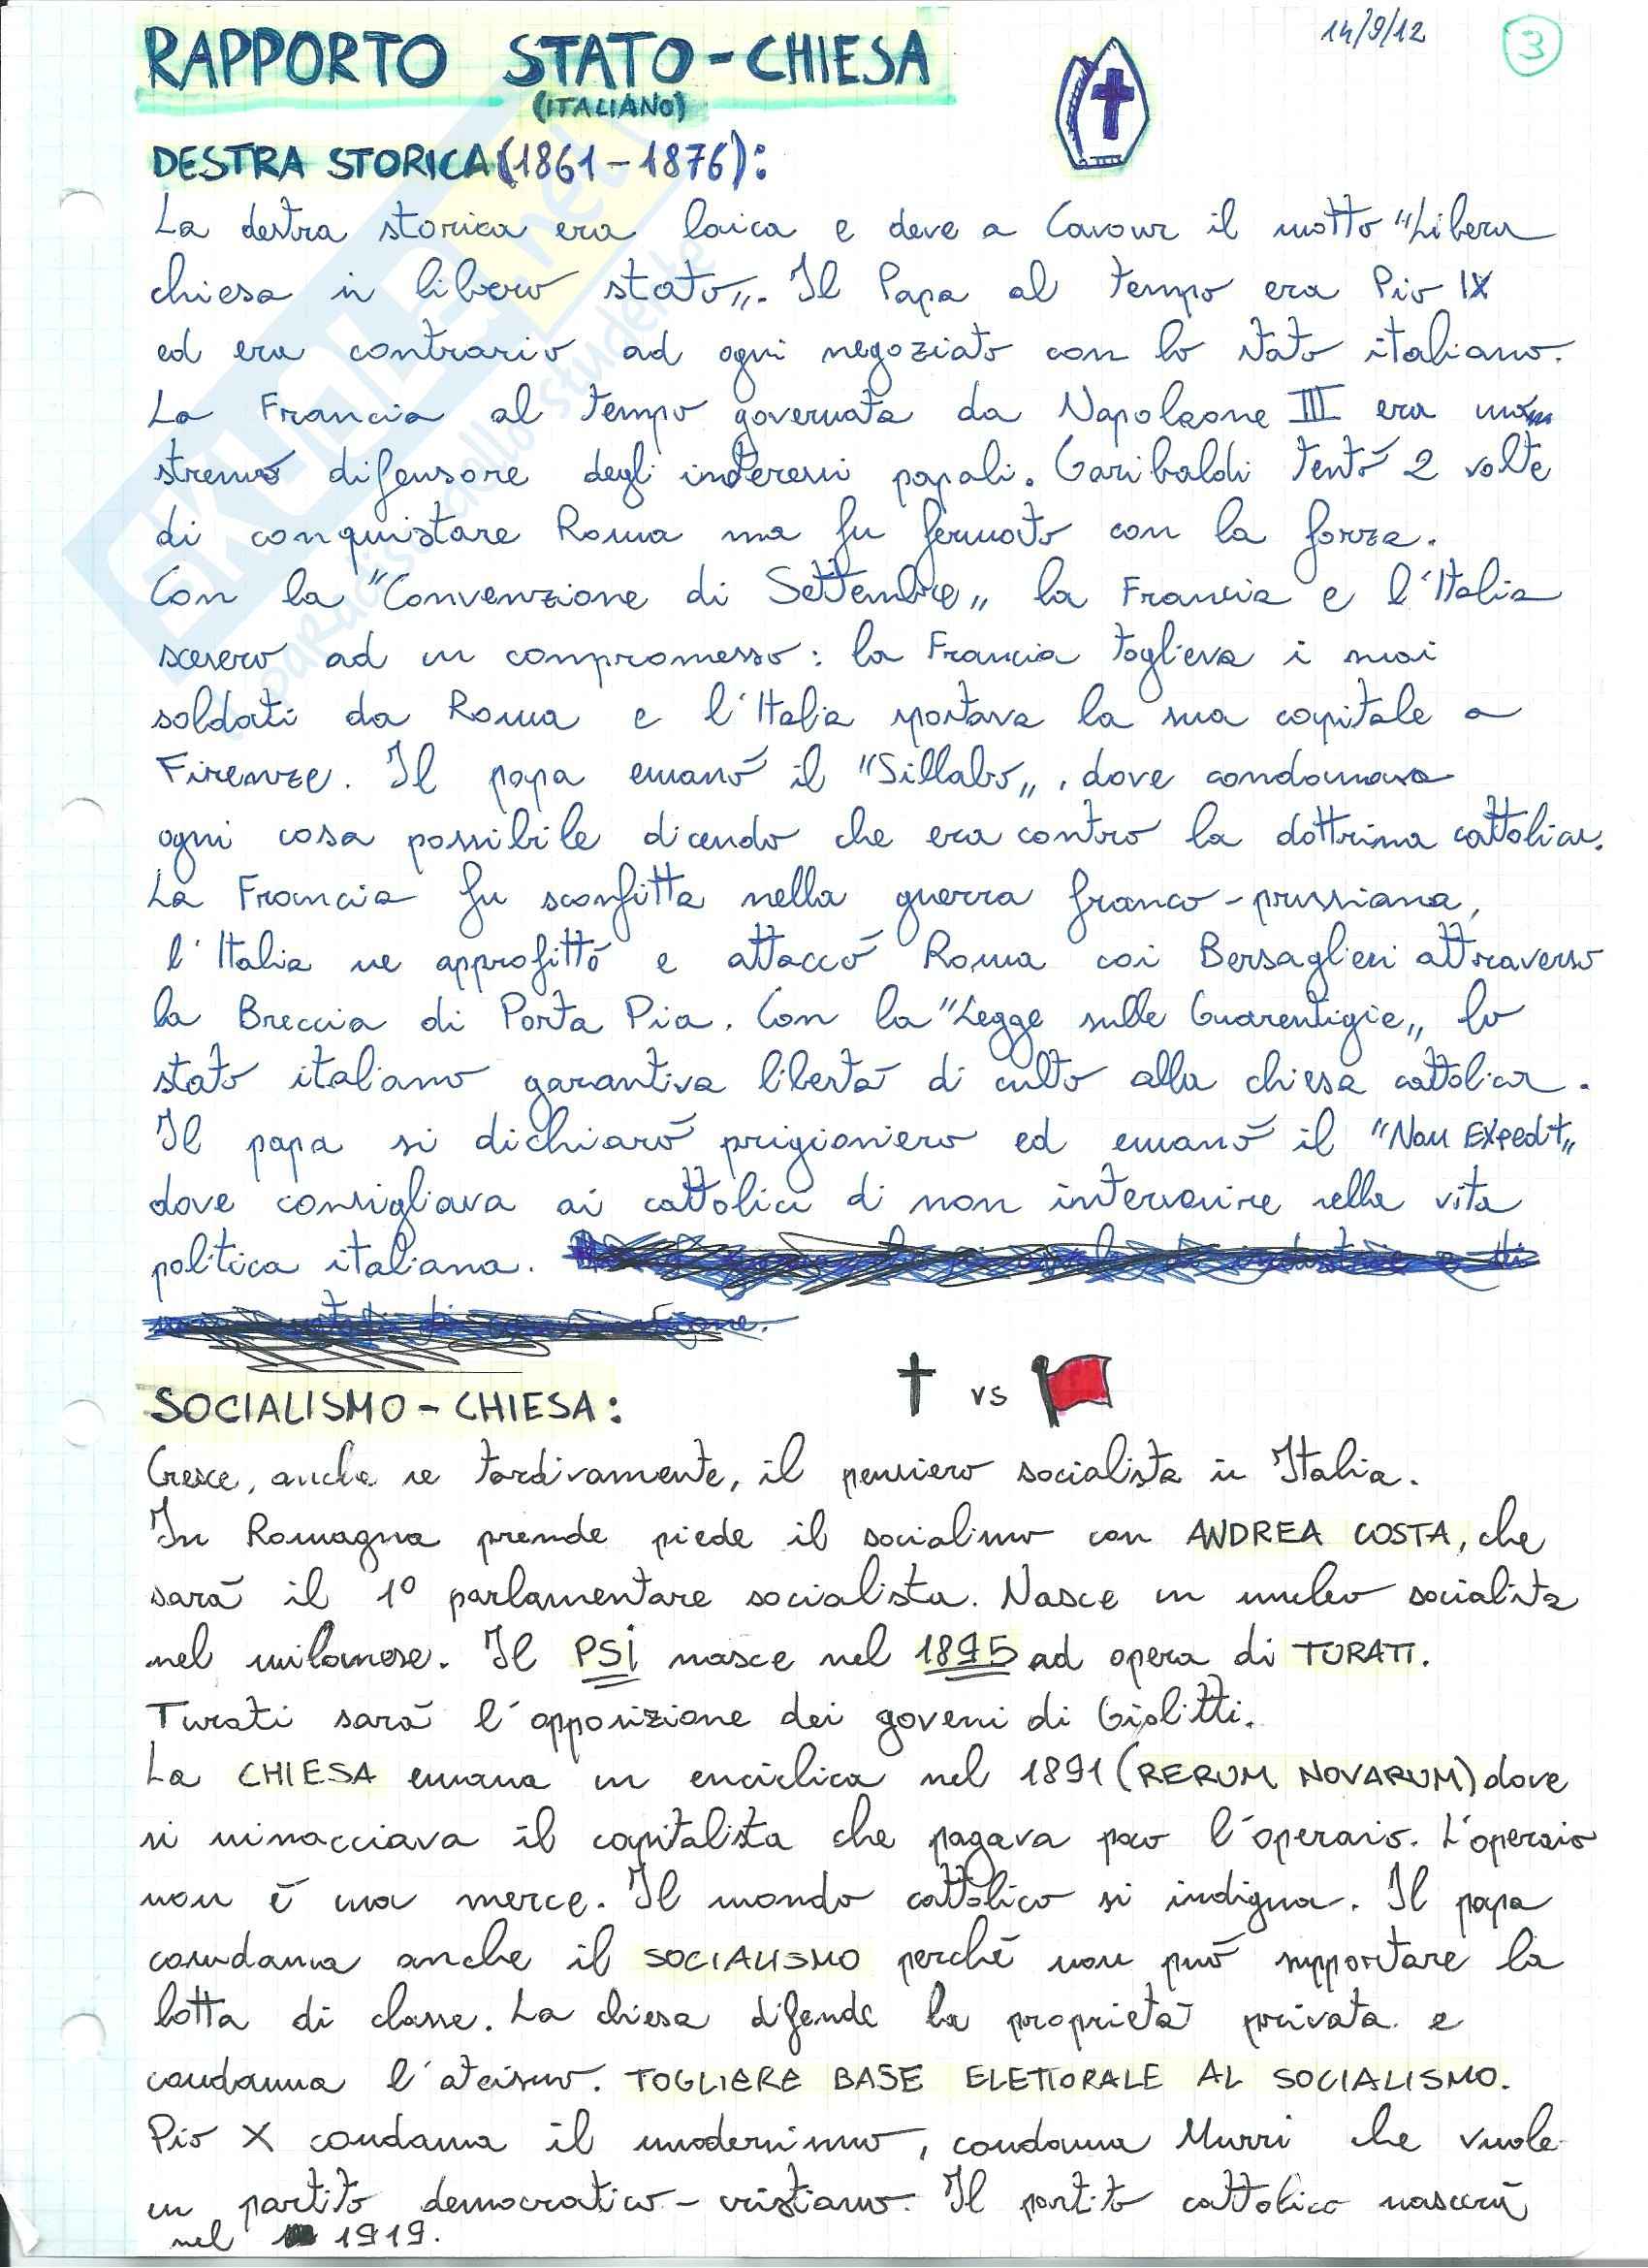 14/9/12
3
RAPPORTO STATO-CHIESA
(ITALIANO)
DESTRA STORICA (1861-1876):
La destra storica era laica e deve a Cavour il motto "Libera
chiesa in libero stato". Il Papa al tempo era Pio IX
ed era contrario ad ogni negoziato con lo stato italiano.
La Francia al tempo governata da Napoleone III era
stremo difensore degli interessi papali. Garibaldi tentò 2 volte
di conquistare Roma ma fu fermato con la forza.
Con la "Convenzione di Settembre" la Francia e l'Italia
scesero ad un compromesso: la Francia toglieva i suoi
soldati da Roma e l'Italia spostava la sua capitale a
Firenze. Il papa emanò il "Sillabo", dove condannava
ogni cosa possibile dicendo che era contro la dottrina cattolica.
La Francia fu sconfitta nella guerra franco-prussiana,
l'Italia ne approfittò e attaccò Roma coi Bersaglieri attraverso
la Breccia di Porta Pia. Con la "Legge sulle Guarentigie" lo
stato italiano garantiva libertà di culto alla chiesa cattolica.
Il papa si dichiarò prigioniero ed emanò il "Non Expedit"
dove consigliava ai cattolici di non intervenire nella vita
politica italiana.
SOCIALISMO-CHIESA:
vs
Cresce, anche se tardivamente, il pensiero socialista in Italia.
In Romagna prende piede il socialismo con ANDREA COSTA, che
sarà il 1° parlamentare socialista. Nasce un nucleo socialista
nel milanese. Il PSI nasce nel 1895 ad opera di TURATI.
Turati sarà l'opposizione dei governi di Giolitti.
La CHIESA emana un enciclica nel 1891 (RERUM NOVARUM) dove
si minacciava il capitalista che pagava poco l'operaio. L'operaio
non è una merce. Il mondo cattolico si indigna. Il papa
condanna anche il SOCIALISMO perché non può supportare la
lotta di classe. La chiesa difende la proprietà privata e
condanna l'ateismo. TOGLIERE BASE ELETTORALE AL SOCIALISMO.
Pio X condanna il modernismo, condanna Murri che vuole
un partito democratico-cristiano. Il partito cattolico nascerà
nel 1919.